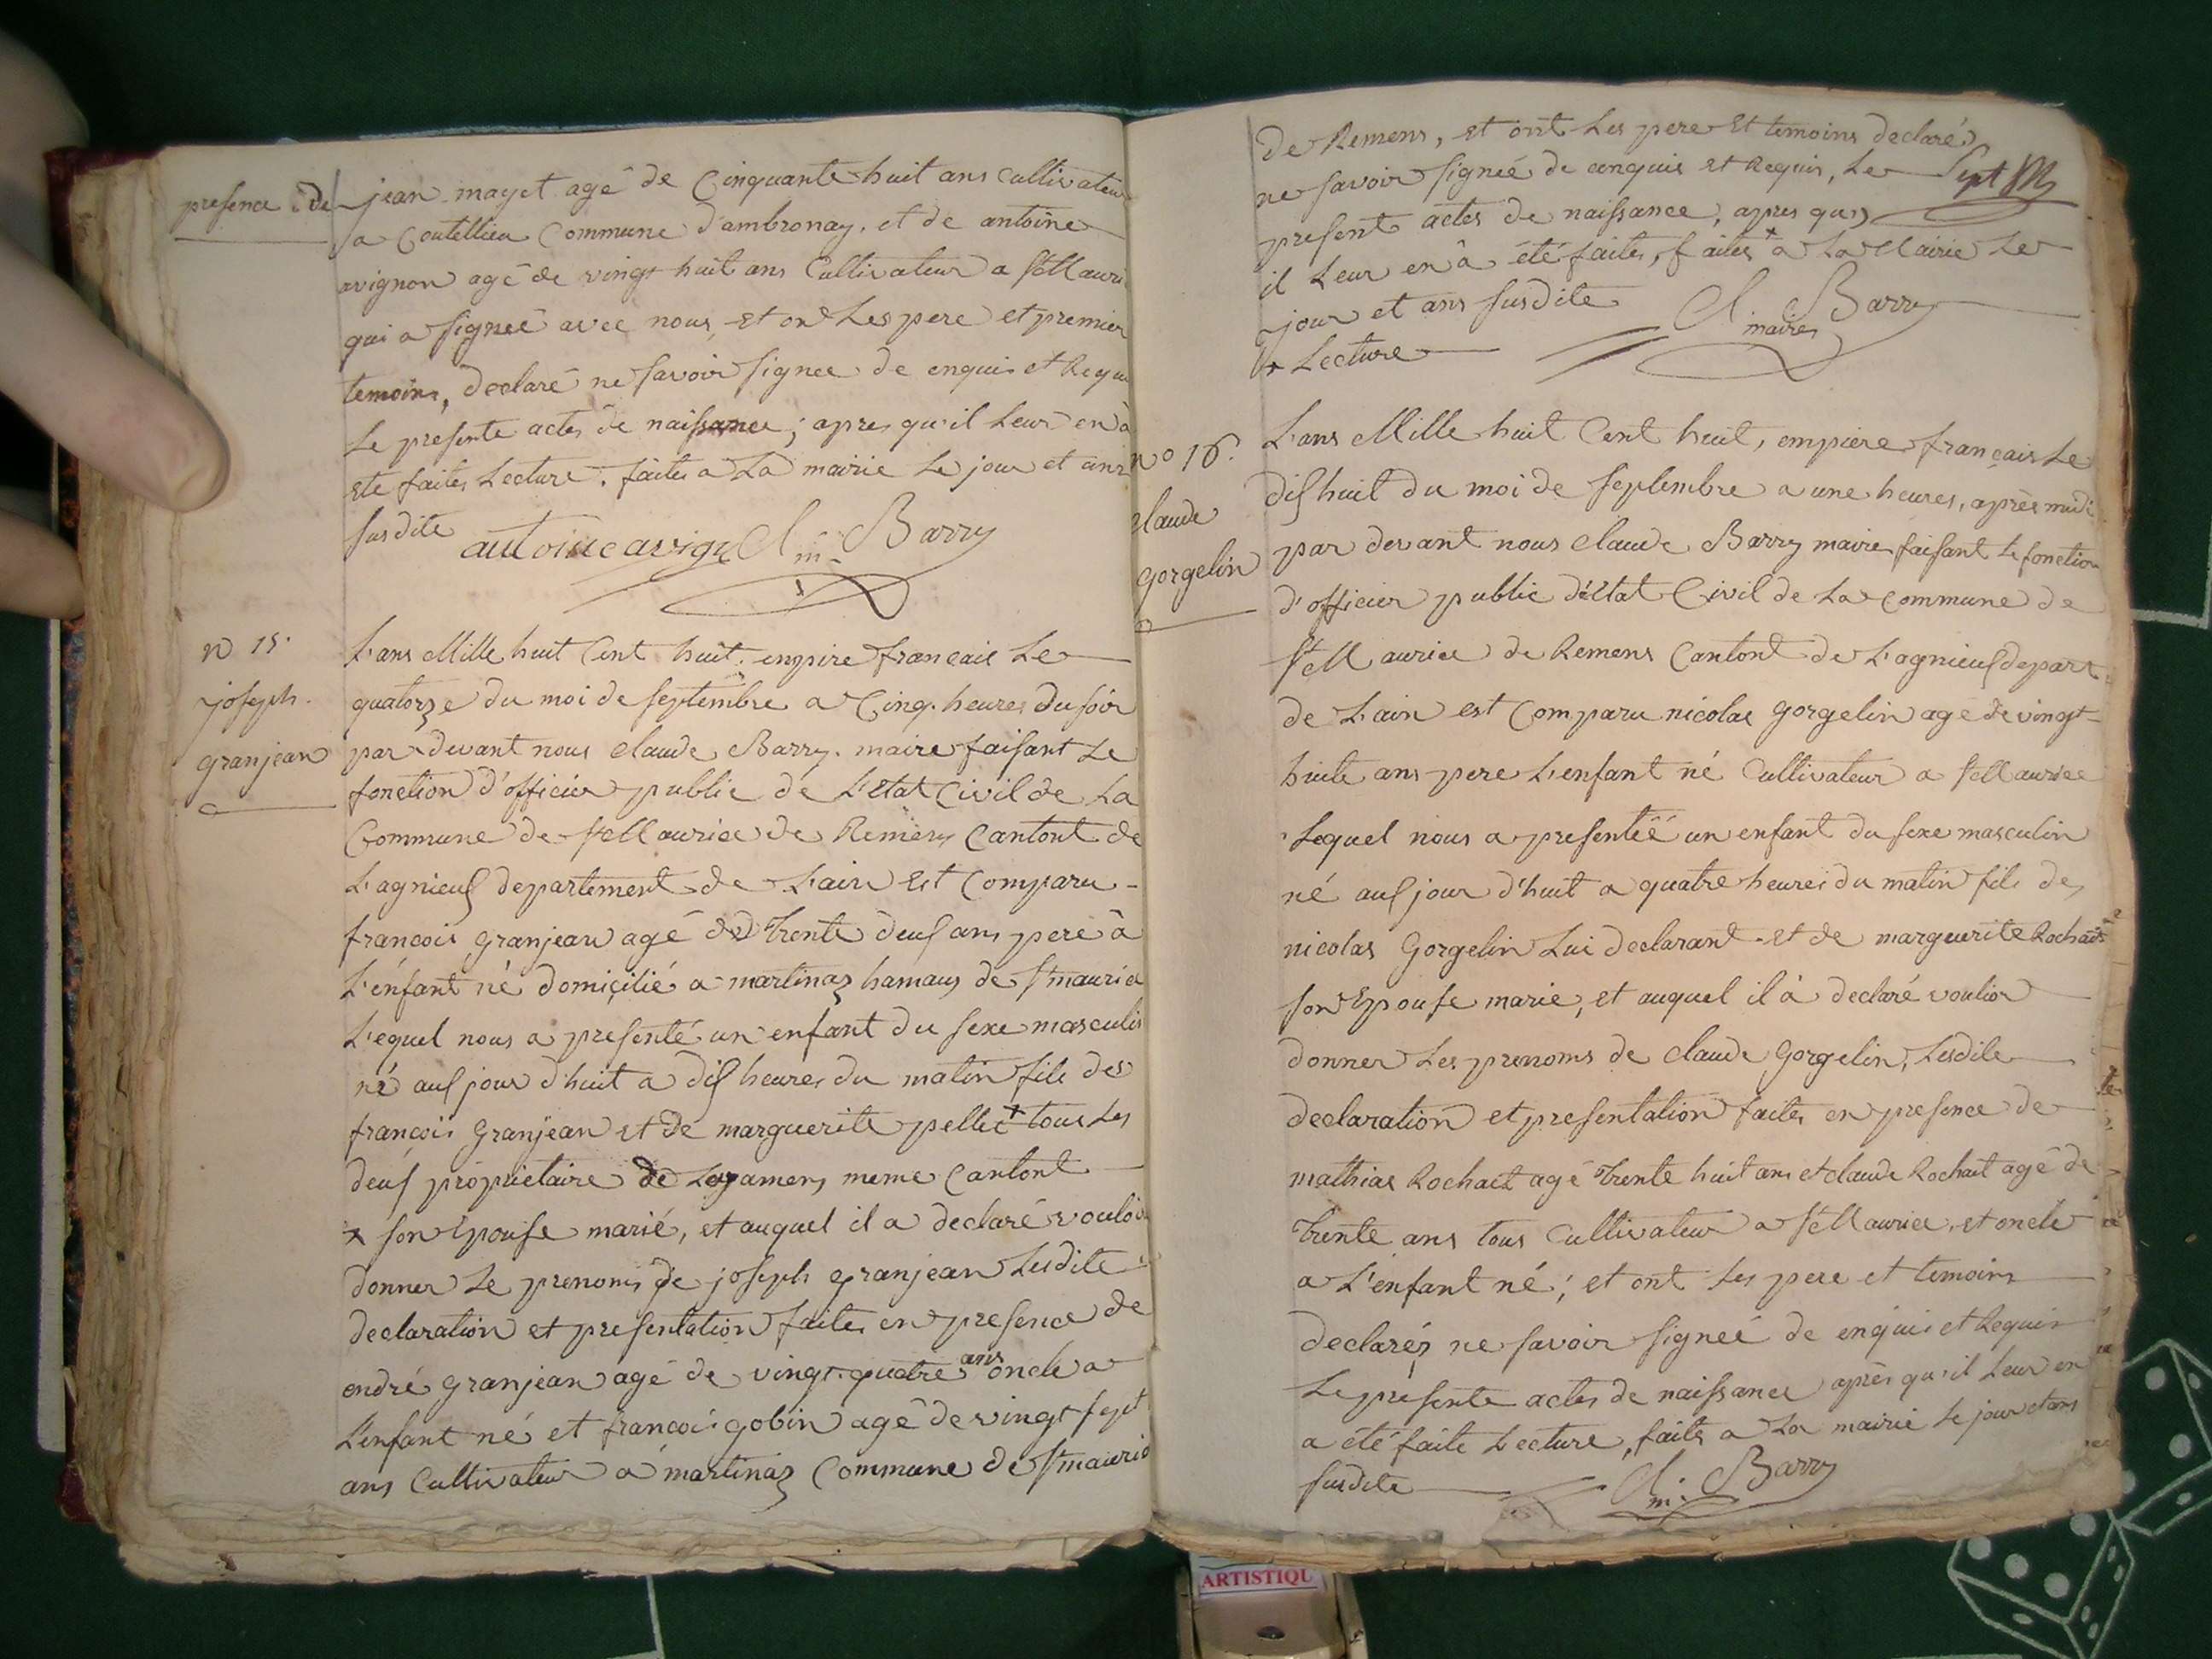 presence de jean mayet agé de Cinquante huit ans cultivateur
a Coutellieu Commune d'ambronay, et de antoine
avignon agé de vingt huit ans Cultivateur a St Mauri
qui a signeé avec nous et ont Les pere et premier
temoins, declaré ne savoir signee de enquis et Requi
Le presente actes de naissance; apres qu'il Leur en à
eté faites Lecture. faites a La mairie Le jour et ans
susdite antoine avign Cl Barry
m
n 15.
joseph.
granjean
L'ans Mille huit Cent huit. empire francais Le
quatorze du moi de septembre a Cinq. heures du soir
par devant nous claude Barry. maire faisant Le
fonction d'officier public de L'Etat Civil de La
Commune de St Maurice de Remens Cantont de
L'agnieuf departement de L'ain est Comparu -
francois granjean agé de trente deuf ans pere à
L'énfant né domicilié a martinaz hamaus de St maurice
L'equel nous a presenté un enfant du sexe masculin
né auf jour d'huit a dif heures du matin fils des
francois Granjean et de marguerite pellet + tous Les
deuf proprietaire de Lagamens meme Cantont
+ son Epouse marié, et auquel il a declaré vouloir
donner Le prenoms de joseph granjean Lesdite
declaration et presentation faites en presence de
andré granjean agé de vingt quatre ans oncle a
L'enfant né et francois gobin agé de vingt sept
ans Cultivateur a martinaz Commune de St maurice
de Remens, et ont Les pere et temoins declaré
ne savoir signeé de enquis et Requis, Le
present actes de naissance, apres que
il Leur en à été faites, + faites a La Mairie Le
jour et ans susdite Cl Barry
maire
+ Lecture
no 16.
claude
gorgelin
L'ans Mille huit Cent huit, empiere francais Le
dif huit du moi de septembre a une heures, après midi
par devant nous claude Barry maire faisant Le fonction
d'officier public d'éEtat Civil de La Commune de
St Maurice de Remens Cantont de L'agnieuf depart.
de L'ain est Comparu nicolas gorgelin agé de vingt-
huite ans pere L'enfant né Cultivateur a St Maurice
Lequel nous a presenteé un enfant du sexe masculin
né auf jour d'huit a quatre heures du matin fils de
nicolas Gorgelin Lui declarant et de marguerite Rochait
son Epouse marie, et auquel il à declaré voulior
donner Les prenoms de claude Gorgelin, Lesdite
declaration et presentation faites en presence de
mathias Rochait agé trente huit ans et claude Rochait agé de
trente ans tous Cultivateur a St Maurice, et oncle
a L'enfant né; et ont Les pere et temoins
declaréz ne savoir signeé de enquis et Requis
Le presente actes de naissance après qu'il Leur en
a été faite Lecture, faites a La mairie Le jour et ans
susdite Cl. Barry
m.
ARTISTIQU